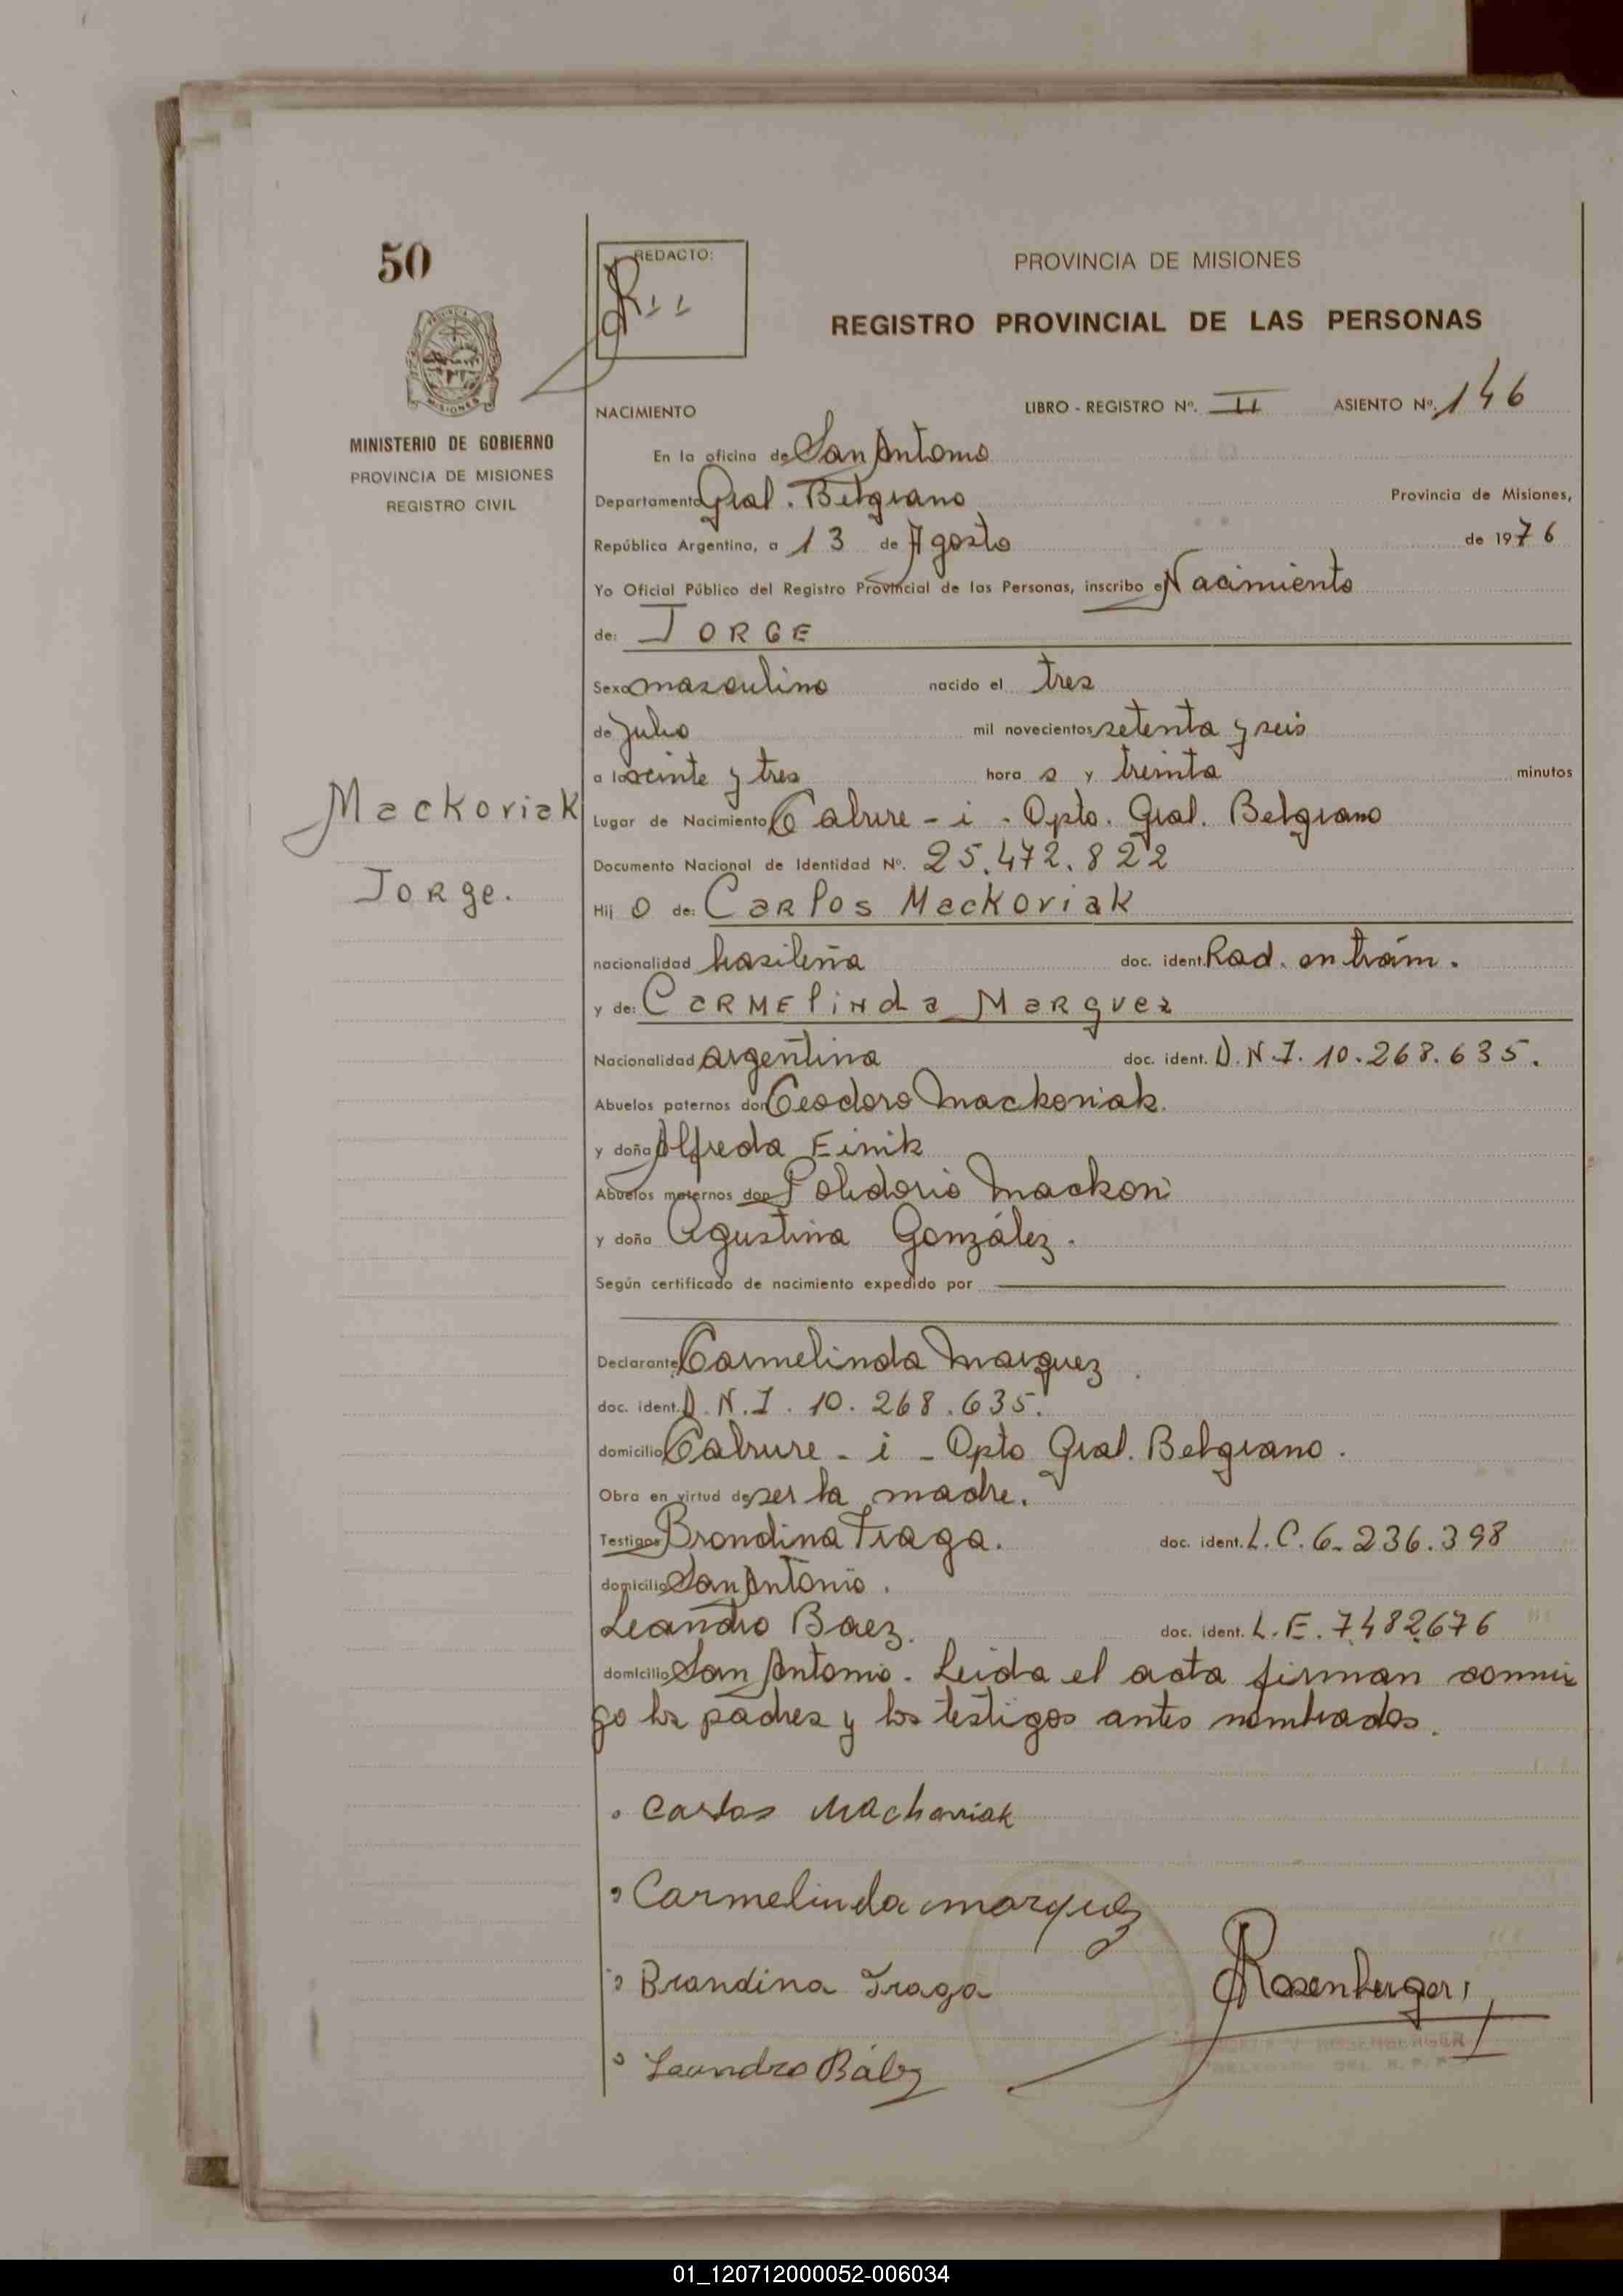 50
REDACTO:
PROVINCIA DE MISIONES
REGISTRO PROVINCIAL DE LAS PERSONAS
MINISTERIO DE GOBIERNO
PROVINCIA DE MISIONES
REGISTRO CIVIL
NACIMIENTO LIBRO - REGISTRO Nº. II ASIENTO Nº. 146
En la oficina de San Antonio
Departamento Gral. Belgrano Provincia de Misiones,
República Argentina, a 13 de Agosto de 1976
Yo Oficial Público del Registro Provincial de las Personas, inscribo el Nacimiento
de: JORGE
Sexo masculino nacido el tres
de Julio mil novecientos setenta y seis
a las veinte y tres hora s y treinta minutos
Mackoviak
Jorge.
Lugar de Nacimiento Cabure - i - Dpto. Gral. Belgrano
Documento Nacional de Identidad Nº. 25.472.822
Hij o de: Carlos Mackoviak
nacionalidad brasileña doc. ident. Rad. en trám.
y de: Carmelinda Marquez
Nacionalidad argentina doc. ident. D.N.I. 10.268.635.
Abuelos paternos don Teodoro Mackoviak.
y doña Alfreda Einik
Abuelos maternos don Polidorio
y doña Agustina González.
Según certificado de nacimiento expedido por
Declarante Carmelinda Marquez
doc. ident. D.N.I. 10.268.635.
domicilio Cabure - i - Dpto Gral. Belgrano.
Obra en virtud de ser la madre.
Testigos Brondina Fraga. doc. ident. L.C. 6.236.398
domicilio San Antonio.
Leandro Baez. doc. ident. L.E. 7.482.676
domicilio San Antonio. Leida el acta firman conmi
go los padres y los testigos antes nombrados.
Carlos Mackoviak
Carmelinda marquez
Brandina Fraga
Rosenberger
Leandro Báez
ROSENBERGER
01_120712000052-006034